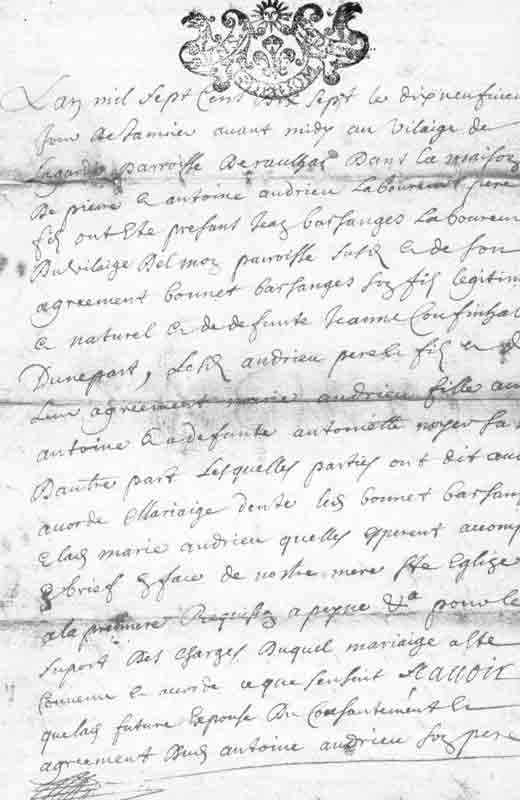 Lan mil sept Cent dix sept le dixneufvieme
Jour de Janvier avant midy au vilaige de
Lagarde parroisse de raulhac dans la maison
de pierre & antoine andrieu laboureurs pere
filz ont ete presant Jean barsanges laboureur
du vilaige del mon parroisse susd & de son
agreement bonnet barsanges son filz legitime
& naturel & de defunte Jeanne
dunepart, Lesd andrieu pere & filz & de
leur agreement marie andrieu fille aud
antoine & a defunte antoinette noyer sa
dautre part Lesquelles parties ont dit avoir
acorde Mariaige dente led bonnet barsanges
& lad marie andrieu quelles accomp
& brief en face de nostre mere ste Eglise
ala premiere Requisition a peyne &a pour le
suport des charges duquel mariaige a ete
Convenu & acorde ce que sensuit Scavoir
que lad future Epouse du Consantement &
agreement dud antoine andrieu son pere